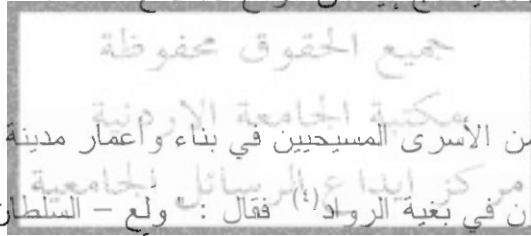 جميع الحقوق محفوظة
مكتبة الجامعة الاردنية
من الأسرى المسيحيين في بناء وأعمار مدينة
مركز ايداع الرسائل الجامعية
في بغية الرواد(٤) فقال : " ولع – السلطان